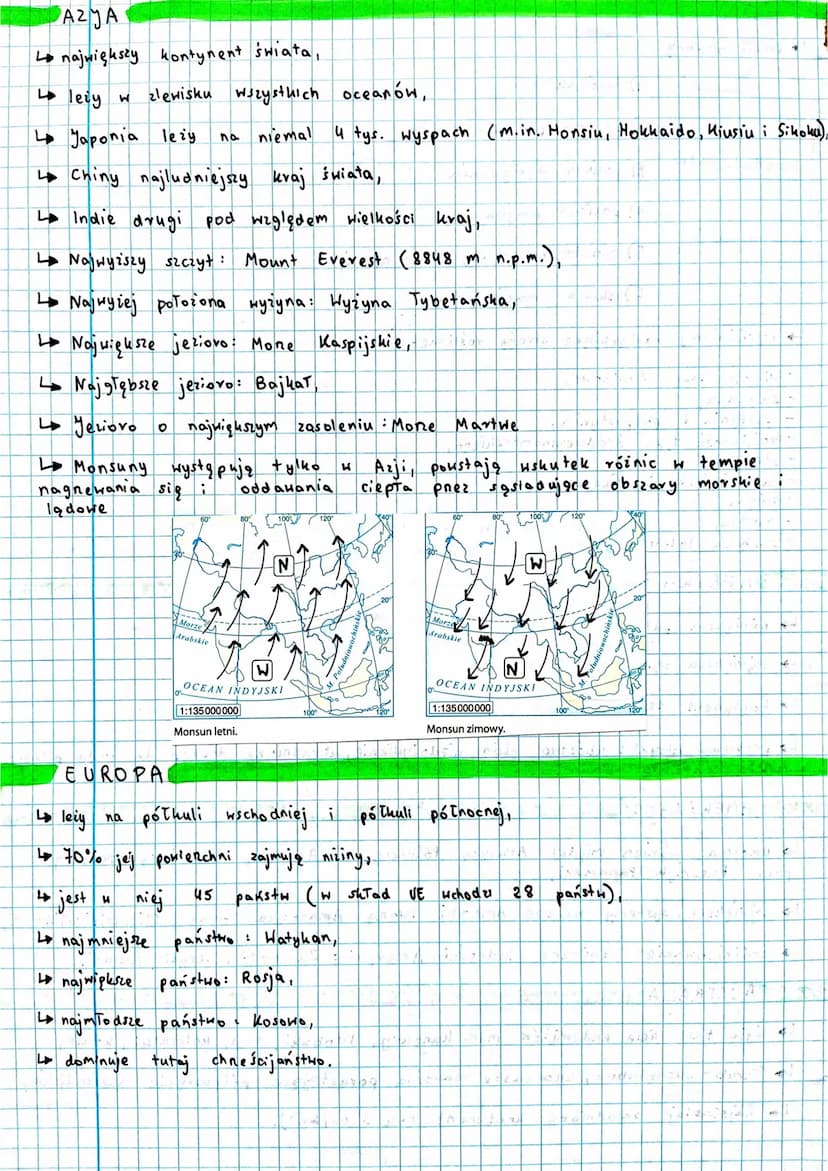 AZJA
↳ największy kontynent świata,
↳ leży w zlewisku wszystkich oceanów,
↳ Japonia leży na niemal 4 tys. wyspach (m.in. Honsiu, Hokkaido, Kiusiu i Sikoku),
↳ Chiny najludniejszy kraj świata,
↳ Indie drugi pod względem wielkości kraj,
↳ Najwyższy szczyt: Mount Everest (8848 m n.p.m.),
↳ Najwyżej położona wyżyna: Wyżyna Tybetańska,
↳ Największe jezioro: Morze Kaspijskie,
↳ Najgłębsze jezioro: Bajkał,
↳ Jezioro o największym zasoleniu: Morze Martwe
↳ Monsuny występują tylko w Azji, powstają wskutek różnic w tempie
nagrzewania się i oddawania ciepła przez sąsiadujące obszary morskie i
lądowe
60° 80° 100° 120° 140°
40°
N
20°
Morze
Arabskie
W
M. Południowochińskie
OCEAN INDYJSKI
0°
1:135000000
100° 120°
Monsun letni.
60° 80° 100° 120° 140°
40°
W
20°
Morze
Arabskie
N
M. Południowochińskie
OCEAN INDYJSKI
0°
1:135000000
100° 120°
Monsun zimowy.
EUROPA
↳ leży na półkuli wschodniej i półkuli północnej,
↳ 70% jej powierzchni zajmują niziny,
↳ jest w niej 45 państw (w skład UE wchodzi 28 państw),
↳ najmniejsze państwo: Watykan,
↳ największe państwo: Rosja,
↳ najmłodsze państwo: Kosowo,
↳ dominuje tutaj chrześcijaństwo.